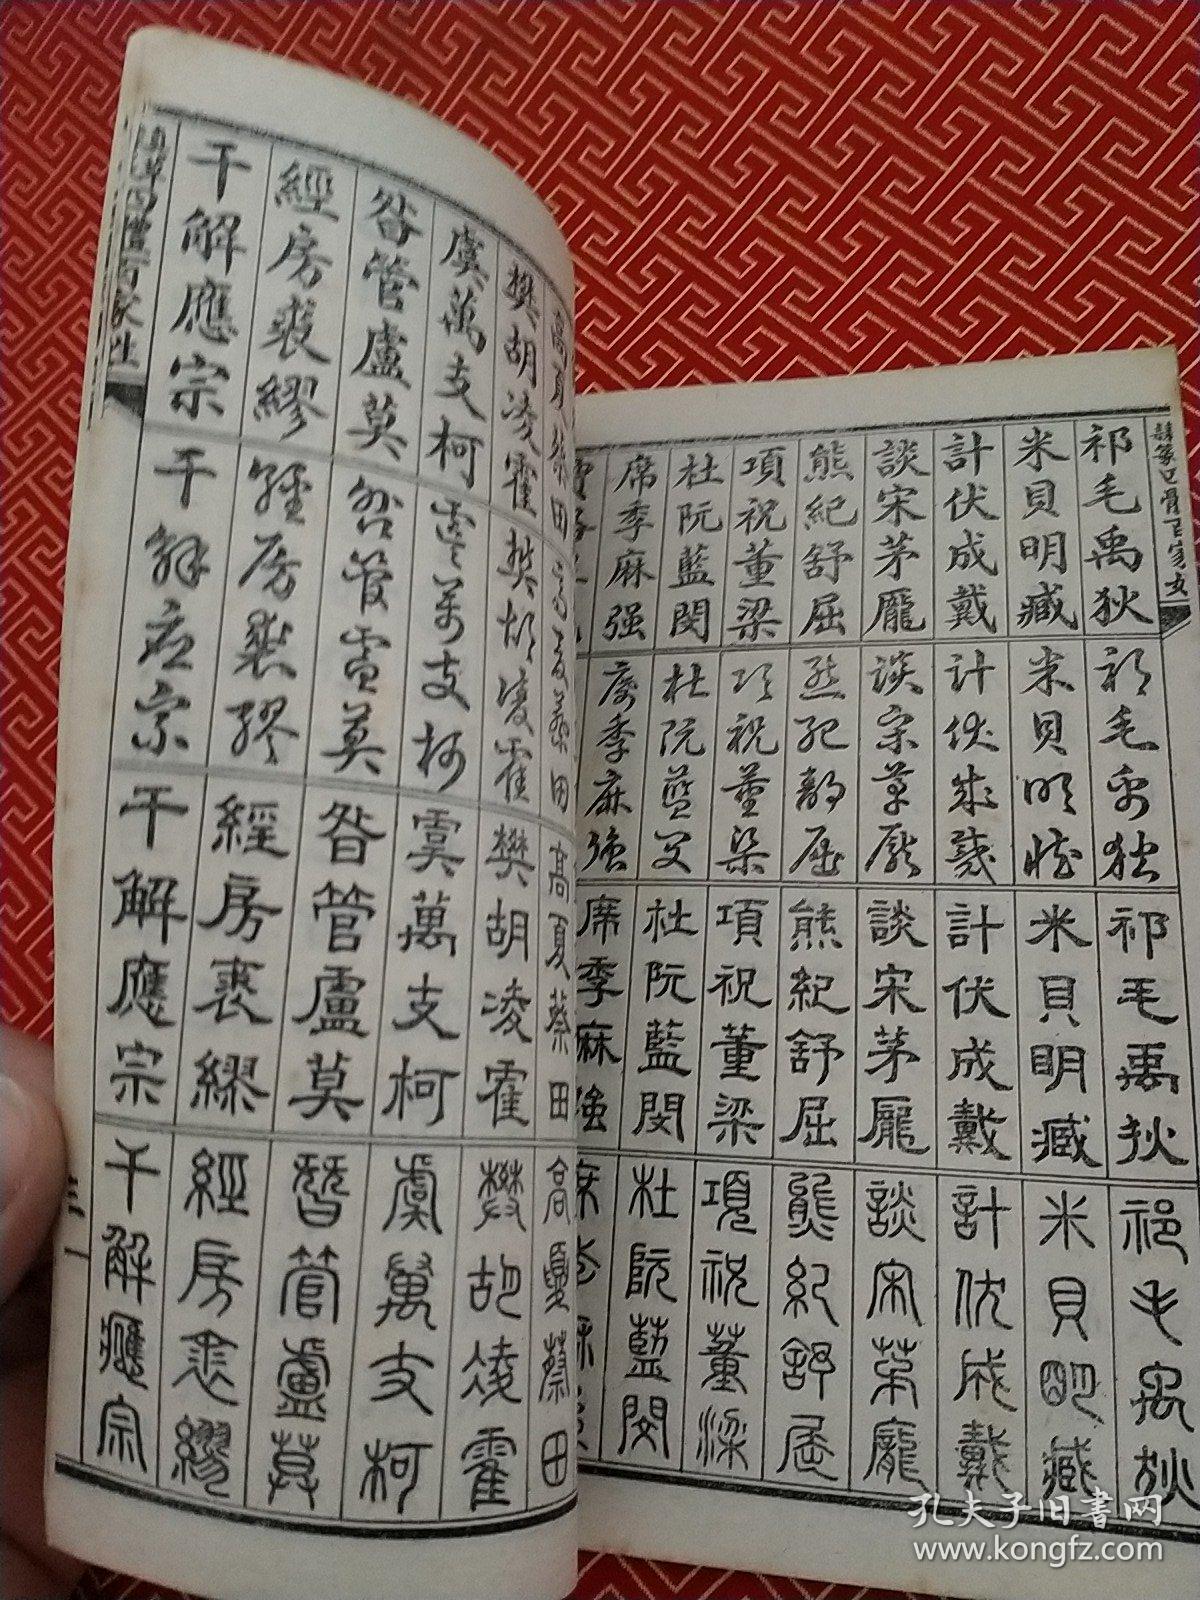 祁毛禹狄
米貝明臧
計伏成戴
談宋茅龐
熊紀舒屈
項祝董梁
杜阮藍閔
席季麻强
祁毛禹狄
米貝明臧
計伏成戴
談宋茅龐
熊紀舒屈
項祝董梁
杜阮藍閔
席季麻強
祁毛禹狄
米貝明臧
計伏成戴
談宋茅龐
熊紀舒屈
項祝董梁
杜阮藍閔
席季麻強
祁毛禹狄
米貝明臧
計伏成戴
談宋茅龐
熊紀舒屈
項祝董梁
杜阮藍閔
高夏蔡田
樊胡凌霍
虞萬支柯
昝管盧莫
經房裘繆
干解應宗
高夏蔡田
樊胡凌霍
虞萬支柯
昝管盧莫
經房裘繆
干解應宗
高夏蔡田
樊胡凌霍
虞萬支柯
昝管盧莫
經房裘繆
干解應宗
高夏蔡田
樊胡凌霍
虞萬支柯
昝管盧莫
經房裘繆
干解應宗
百家姓
孔夫子旧書网
www.kongfz.com